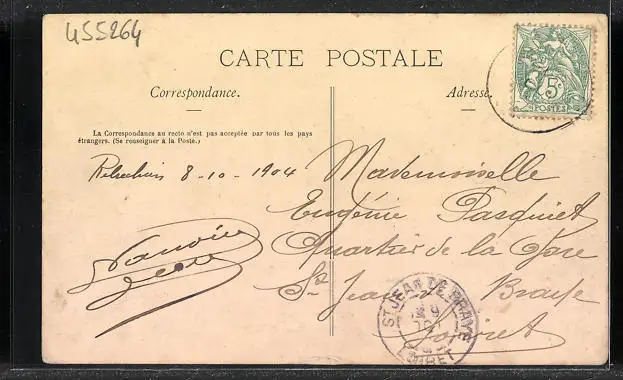 455264
CARTE POSTALE
Correspondance.
Adresse.
5c
POSTES
La Correspondance au recto n'est pas acceptée par tous les pays
étrangers. (Se renseigner à la Poste.)
8-10-1904
Mademoiselle
Eugénie Pasquiet
Quartier de la Gare
St Jean Braye
Loiret
ST JEAN DE BRAYE
LOIRET